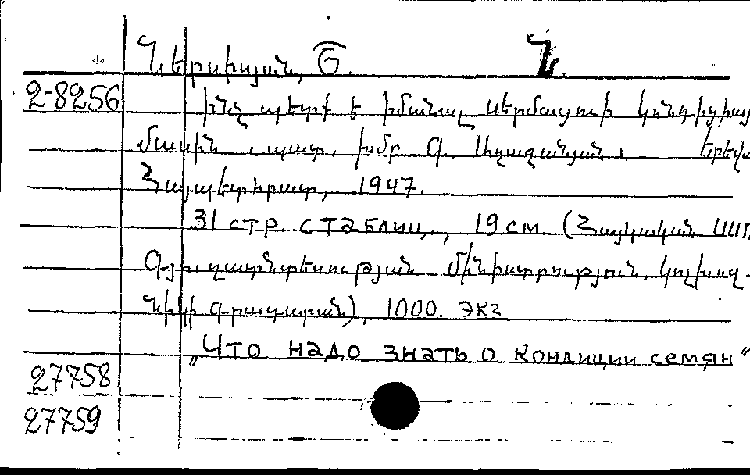 Ներսիսյան, Ծ. Ն.
2-8256 Ինչ պետք է իմանալ սերմացուի կոնդիցիայ
մասին, պատ. խմբ. Գ. Աղաջանյան. Երեվ.
Հայպետհրատ, 1947.
31 стр. с таблиц., 19 см. (Հայկական ՍՍՌ
Գյուղատնտեսության մինիստրություն. կոլխոզ-
նիկի գրադարան), 1000. экз
„Что надо знать о кондиции семян"
27758
27759